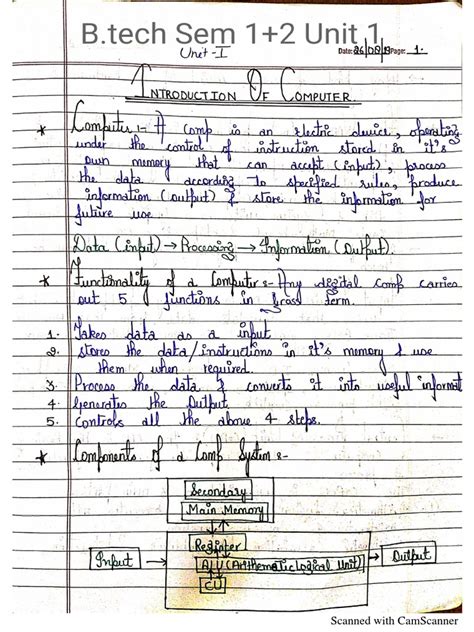 B.tech Sem 1+2 Unit 1
Unit-I Date: 26/08/19 Page: 1.
INTRODUCTION OF COMPUTER
* Computer :- A comp is an electric device, operating
under the control of instruction stored in it's
own memory that can accept (input), process
the data according to specified rules, produce
information (output) & store the information for
future use.
Data (input) → Processing → Information (Output).
* Functionality of a Computer :- Any digital comp carries
out 5 functions in gross term.
1. Takes data as a input
2. stores the data/instructions in it's memory & use
them when required.
3. Process the data & converts it into useful informat
4. Generates the Output
5. Controls all the above 4 steps.
* Components of a Comp System :-
Secondary
Main Memory
Register
Input → ALU (Arithmetic Logical Unit) → Output
CU
Scanned with CamScanner